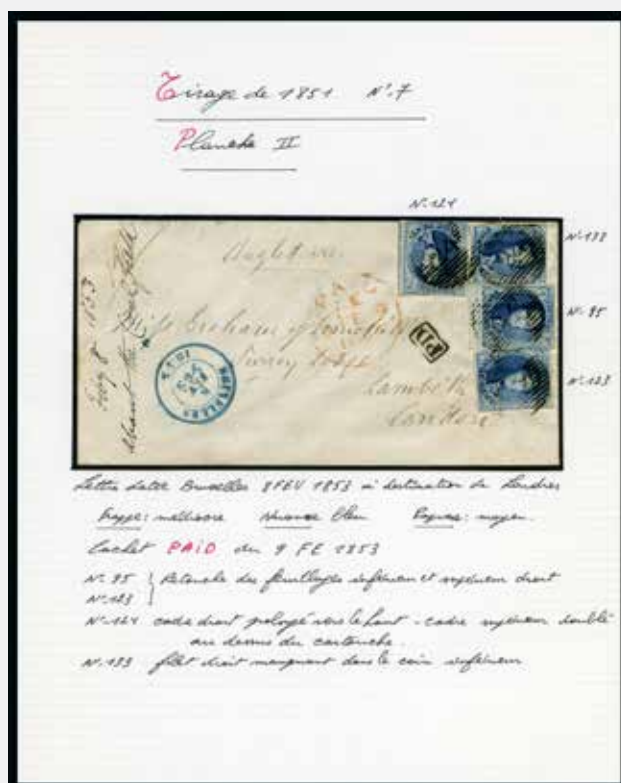 Tirage de 1851 N° 7
Planche II
N° 124
N° 133
N° 95
N° 123
Angleterre
Miss
Lambeth
London
PD
BRUXELLES
1853
Lettre datée Bruxelles 8 FEV 1853 à destination de Londres
Frappe: médiocre Nuance bleu Papier: moyen
Cachet PAID du 9 FE 1853
N° 95 } Retouche des feuillages inférieur et supérieur droit
N° 123
N° 124 cadre droit prolongé vers le haut - cadre supérieur doublé
au dessus du cartouche.
N° 133 filet droit manquant dans le coin inférieur